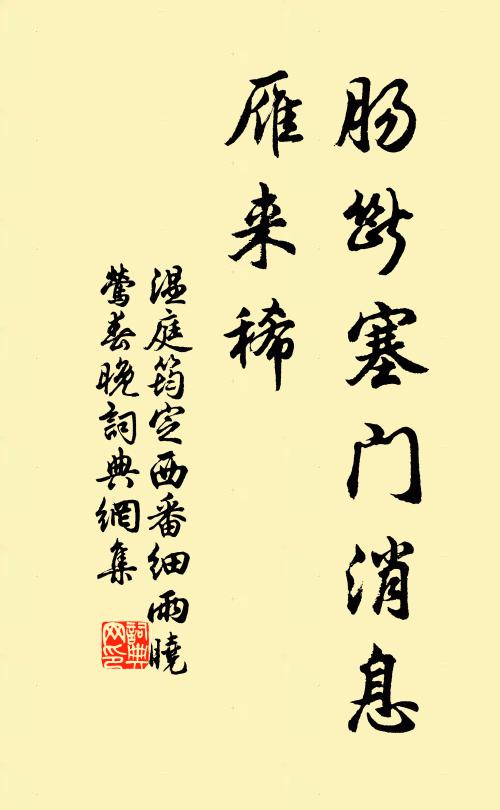 肠断塞门消息
雁来稀
温庭筠定西番细雨晓
莺春晚词典网集
词典
网印